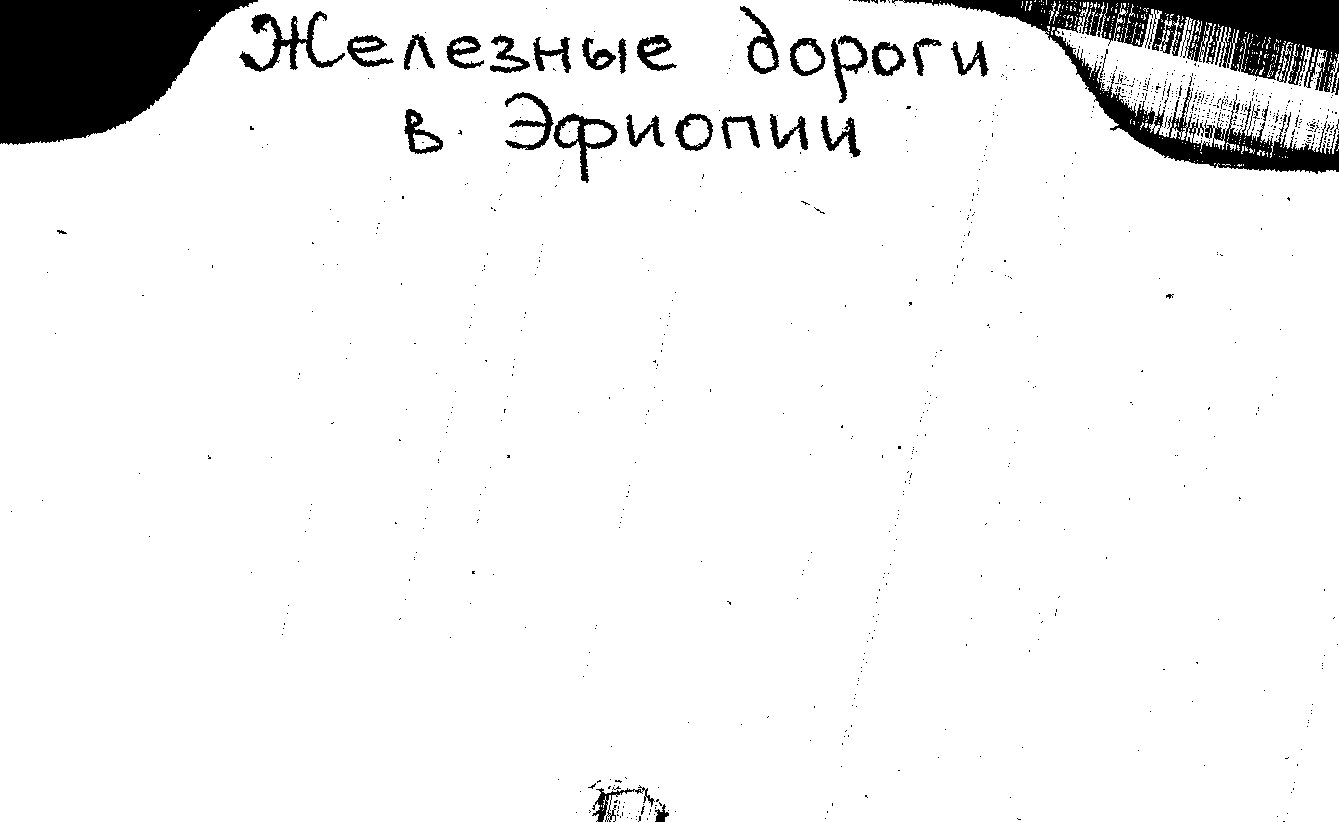 Железные дороги
в Эфиопии